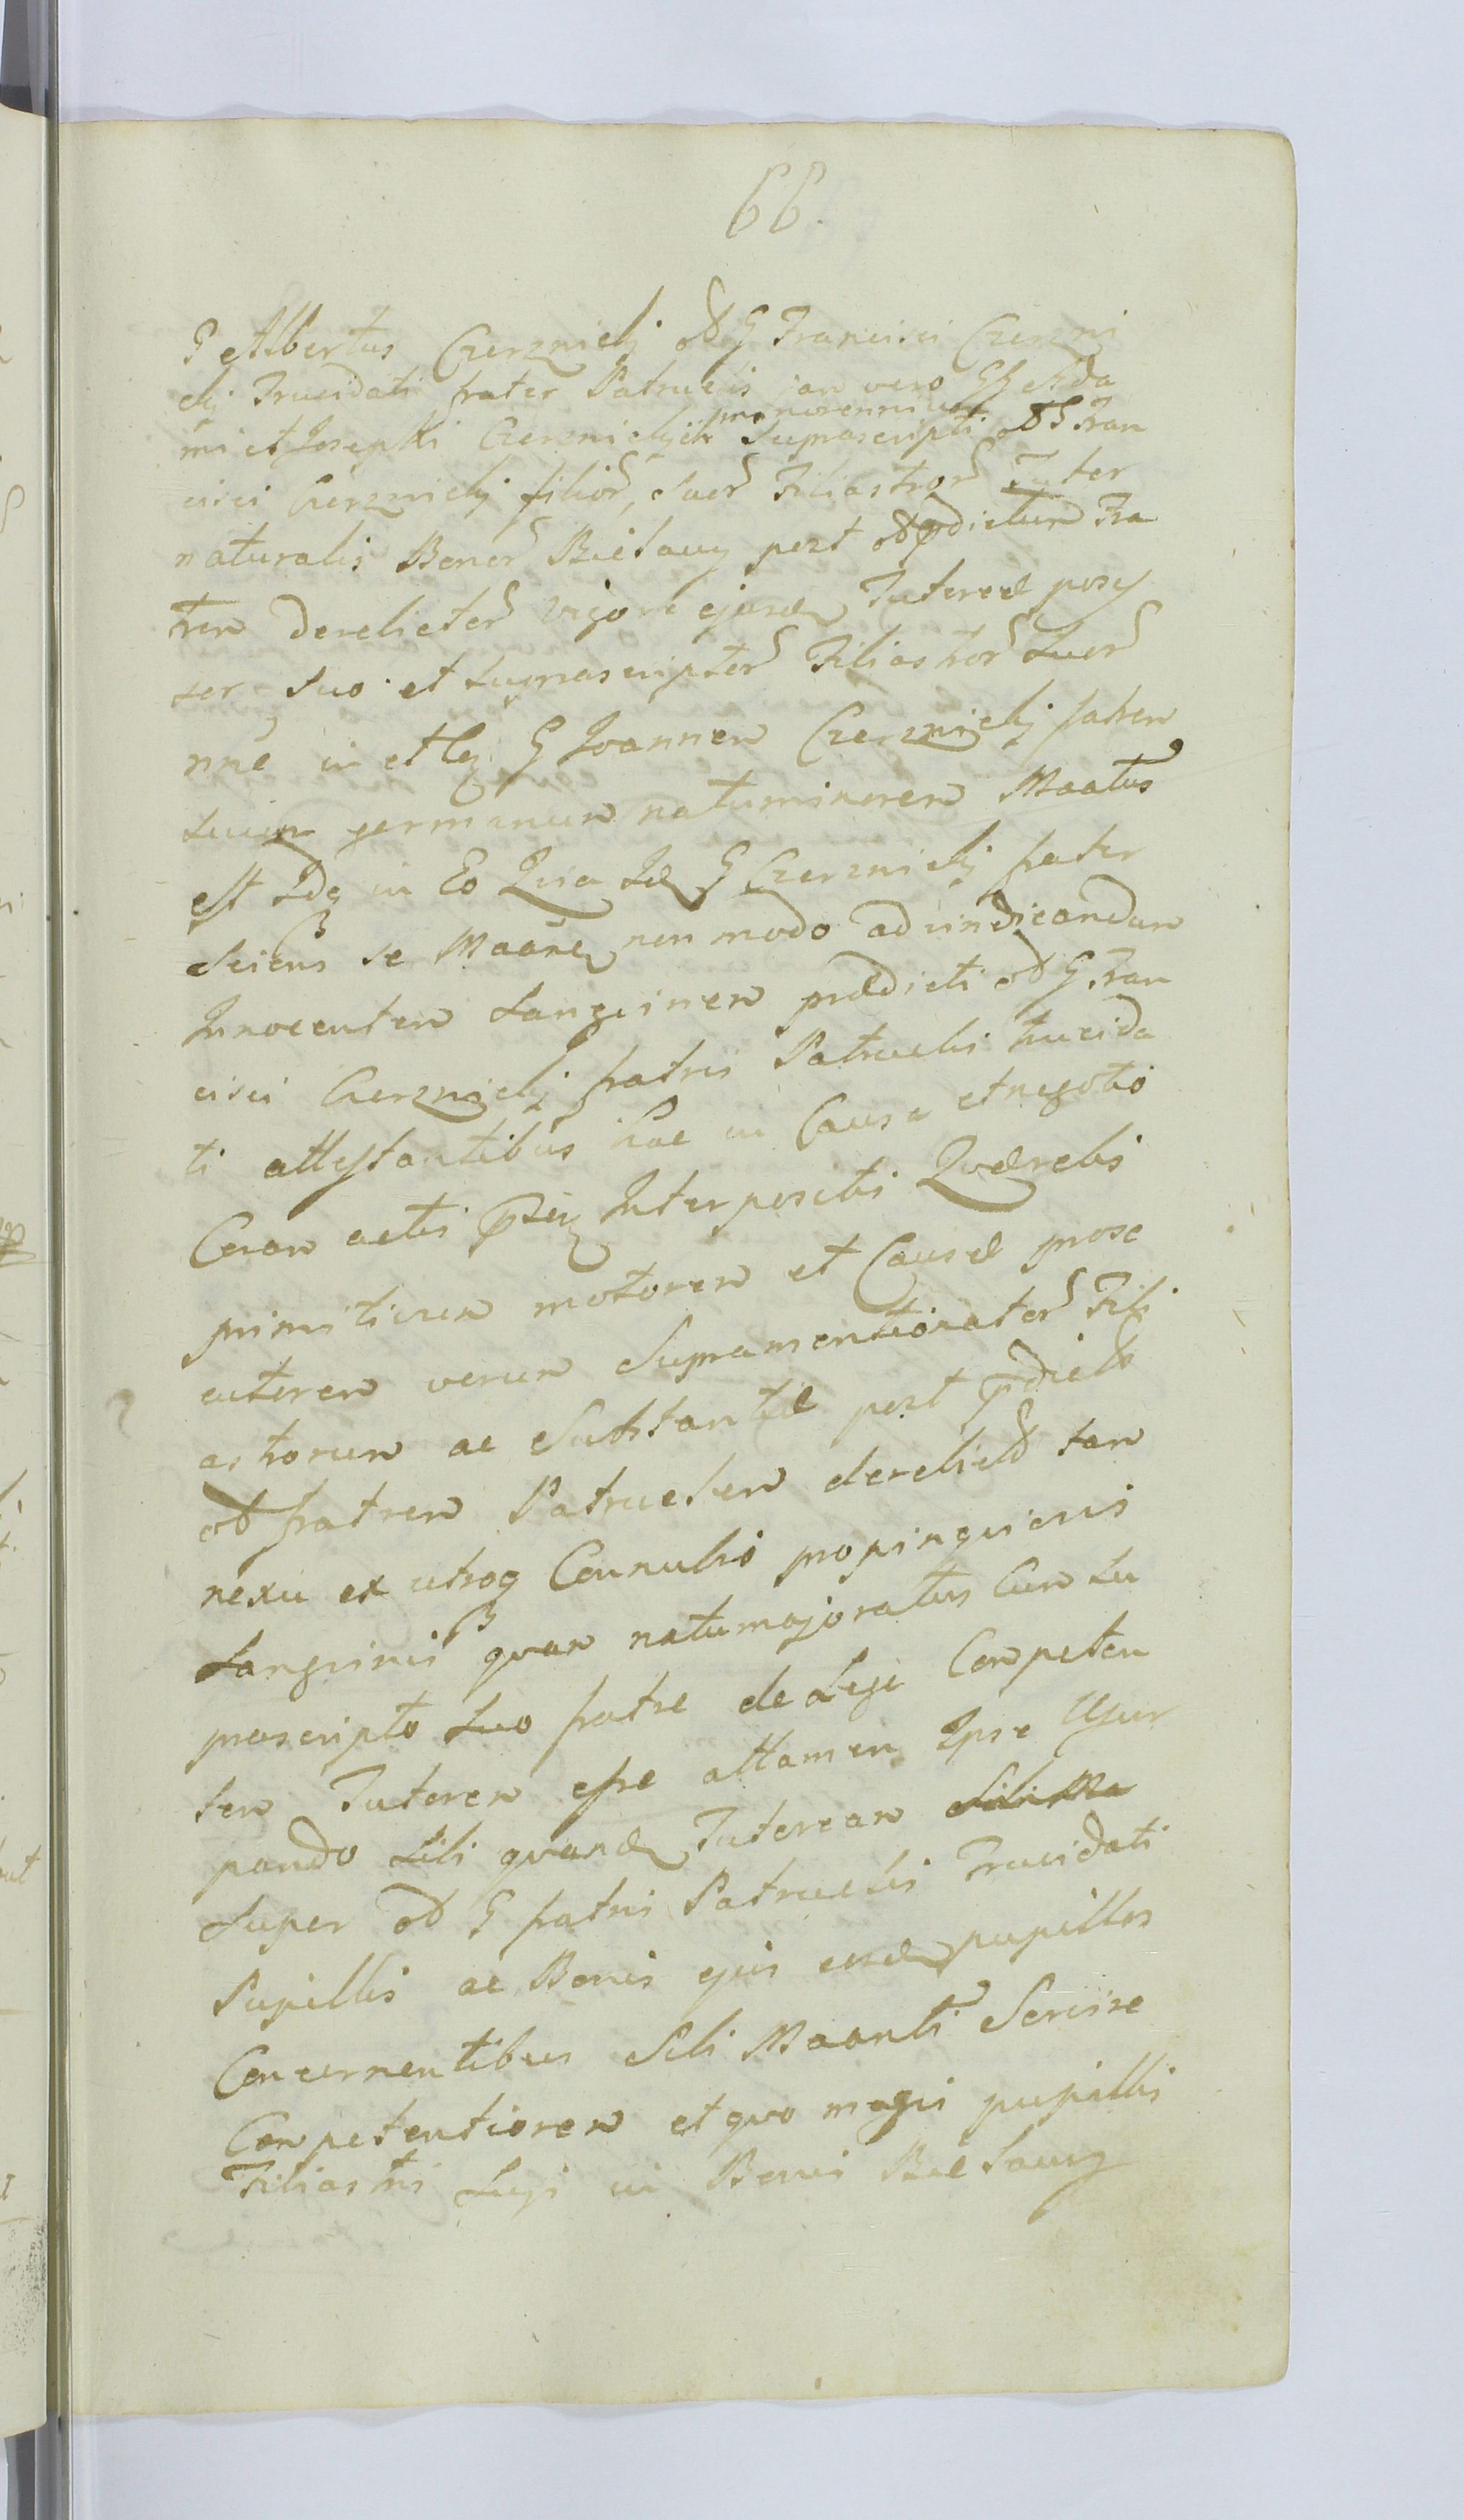 66.
G Albertus Czerznicki olim G Francisci Czerzni
cki Trucidati frater Patruelis jam vero GG Ada
mi et Josephi Czerznickich minorennium Suprascripti olim G Fran
cisci Czerznicki filior, Suor Filiastror Tutor
naturalis Bonor Bielawy post olim pdictum Fra
trem derelictor vigore ejusd Tutorae posy
tor Suo et Suprascriptor Filiastror Suor
nne in et Cq G Joannem Czerznicki fratrem
Suum germanum natuminorem Maatus
est Idq in Eo Quia Id G Czerznicki frater
Sciens se Maane non modo ad vindicandum
Innocentem Sanguinem praedicti olim G. Fran
cisci Czerznicki fratris Patruelis trucida
ti attestantibus hac in Causa et negotio
Coram actis psen Interpositis Quaerelis
primitivum motorem et Causae prose
cutorem verum Supramentionator Fili
astrorum ac Substantiae post pdict
olim fratrem Patruelem derelict tam
nexu ex utroq Connubio propinquioris
Sanguinis quam natumajoratus Cum Su
prascripto Suo fratre de Lege Competen
tem Tutorem esse attamen Ipse Usur
pando Sibi quand Tutoream
Super olim G fratris Patruelis Trucidati
Pupillis ac Bonis ejus eosd pupillos
Concernentibus Sibi Maanti Servire
Competentiorem et quo magis pupillis
Filiastris Suis in Bonis Bielawy